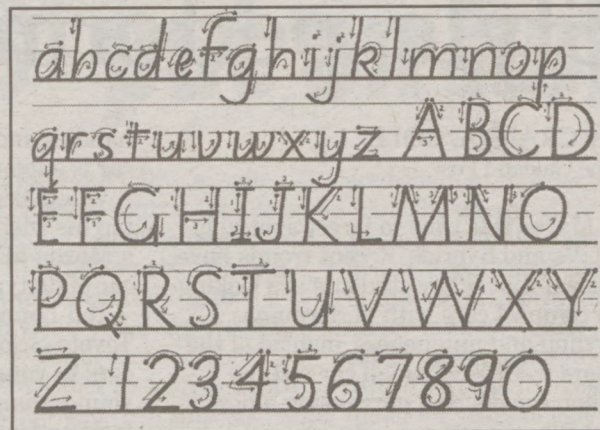 abcdefghijklmnop
qrstuvwxyz ABCD
EFGHIJKLMNO
PQRSTUVWXY
Z 1234567890